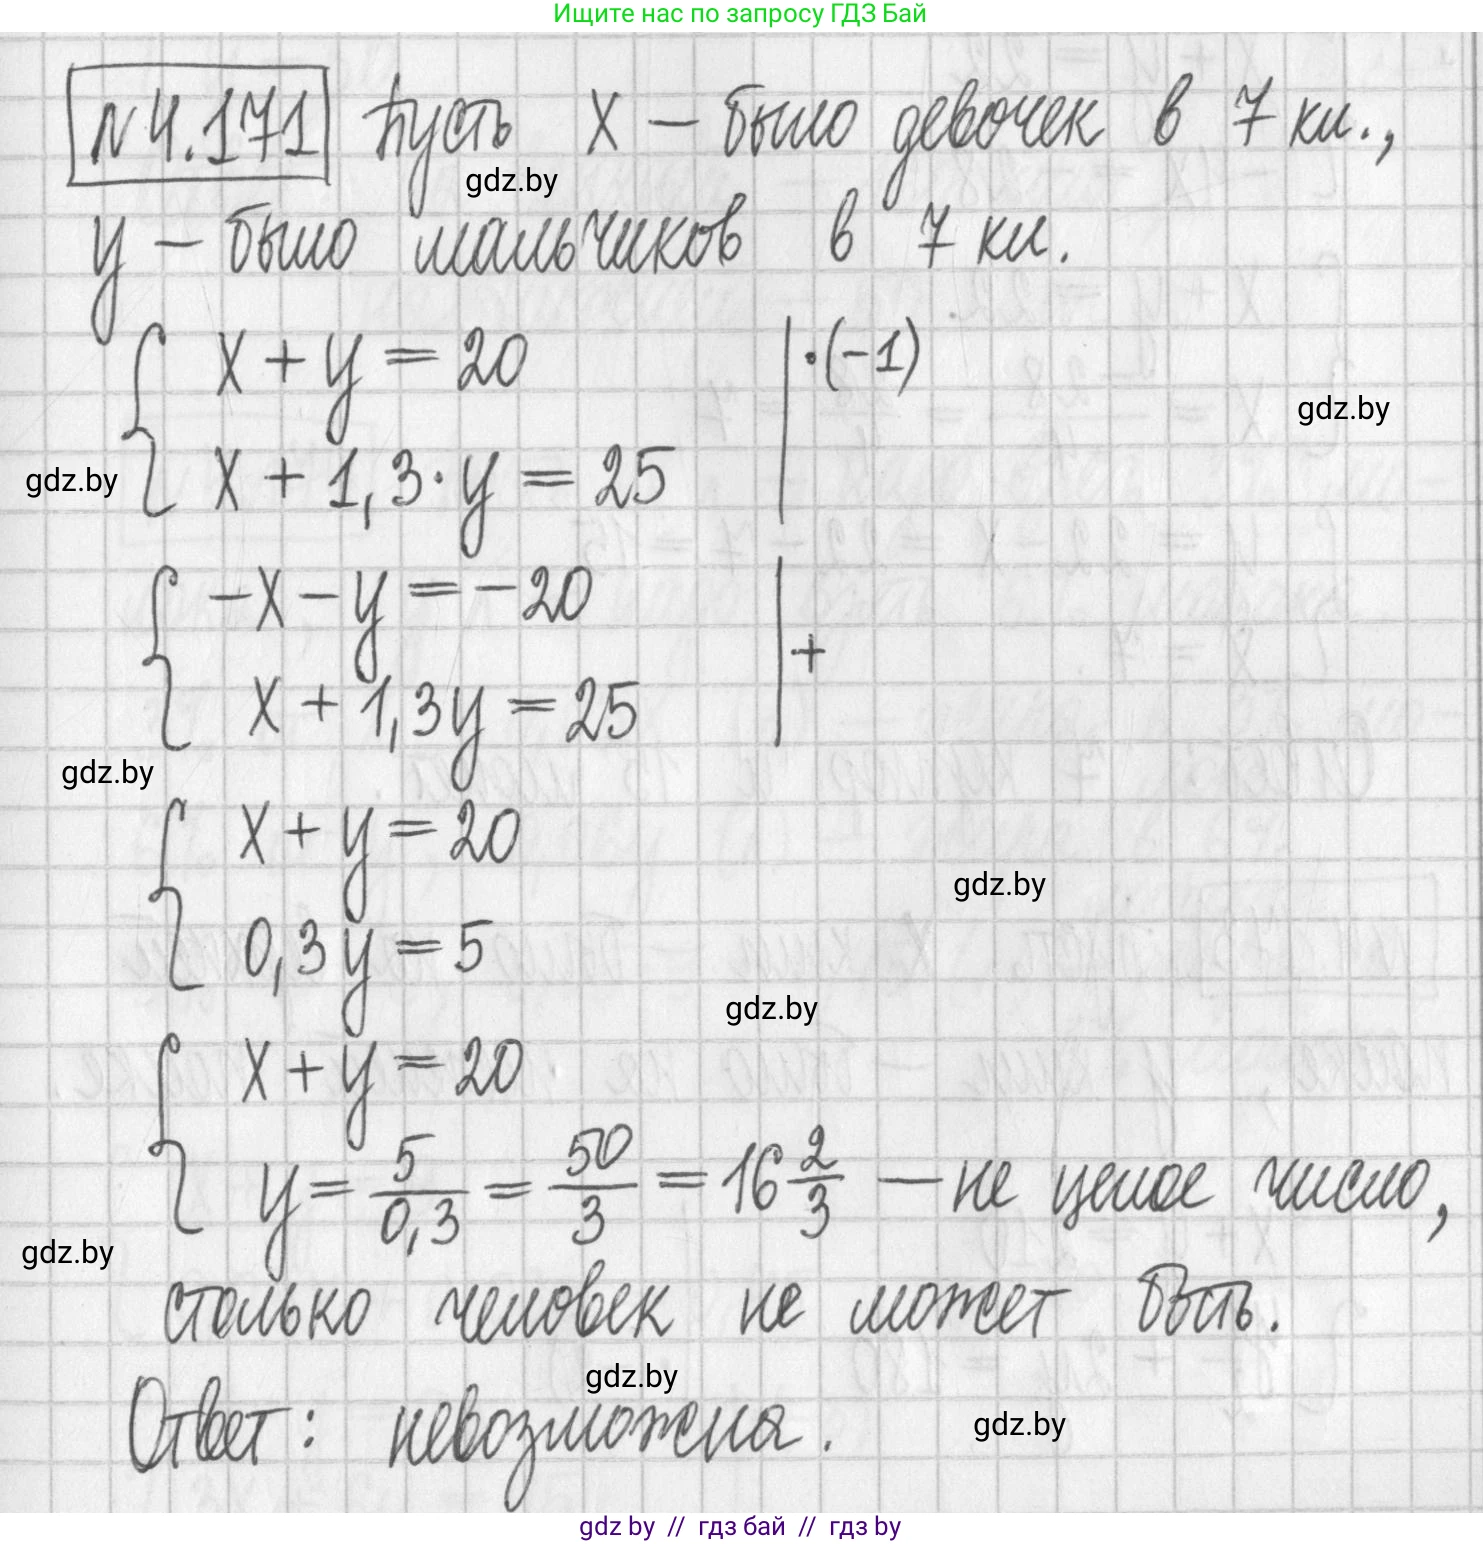 Ищите нас по запросу ГДЗ Бай
№4.171 Пусть x – было девочек в 7 кл.,
gdz.by
y – было мальчиков в 7 кл.
{ x + y = 20 | · (-1)
gdz.by
{ x + 1,3 · y = 25
gdz.by
{ -x - y = -20 | +
{ x + 1,3y = 25
gdz.by
{ x + y = 20
gdz.by
{ 0,3y = 5
gdz.by
{ x + y = 20
{ y = 5/0,3 = 50/3 = 16 2/3 – не целое число,
gdz.by
столько человек не может быть.
gdz.by
Ответ: невозможна.
gdz.by
gdz by // гдз бай // гдз by